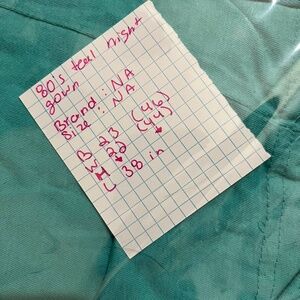 80's teal night
gown
Brand: NA
Size: NA
B 23 (46)
W 22 (44)
H ↓ ↓
L 38 in